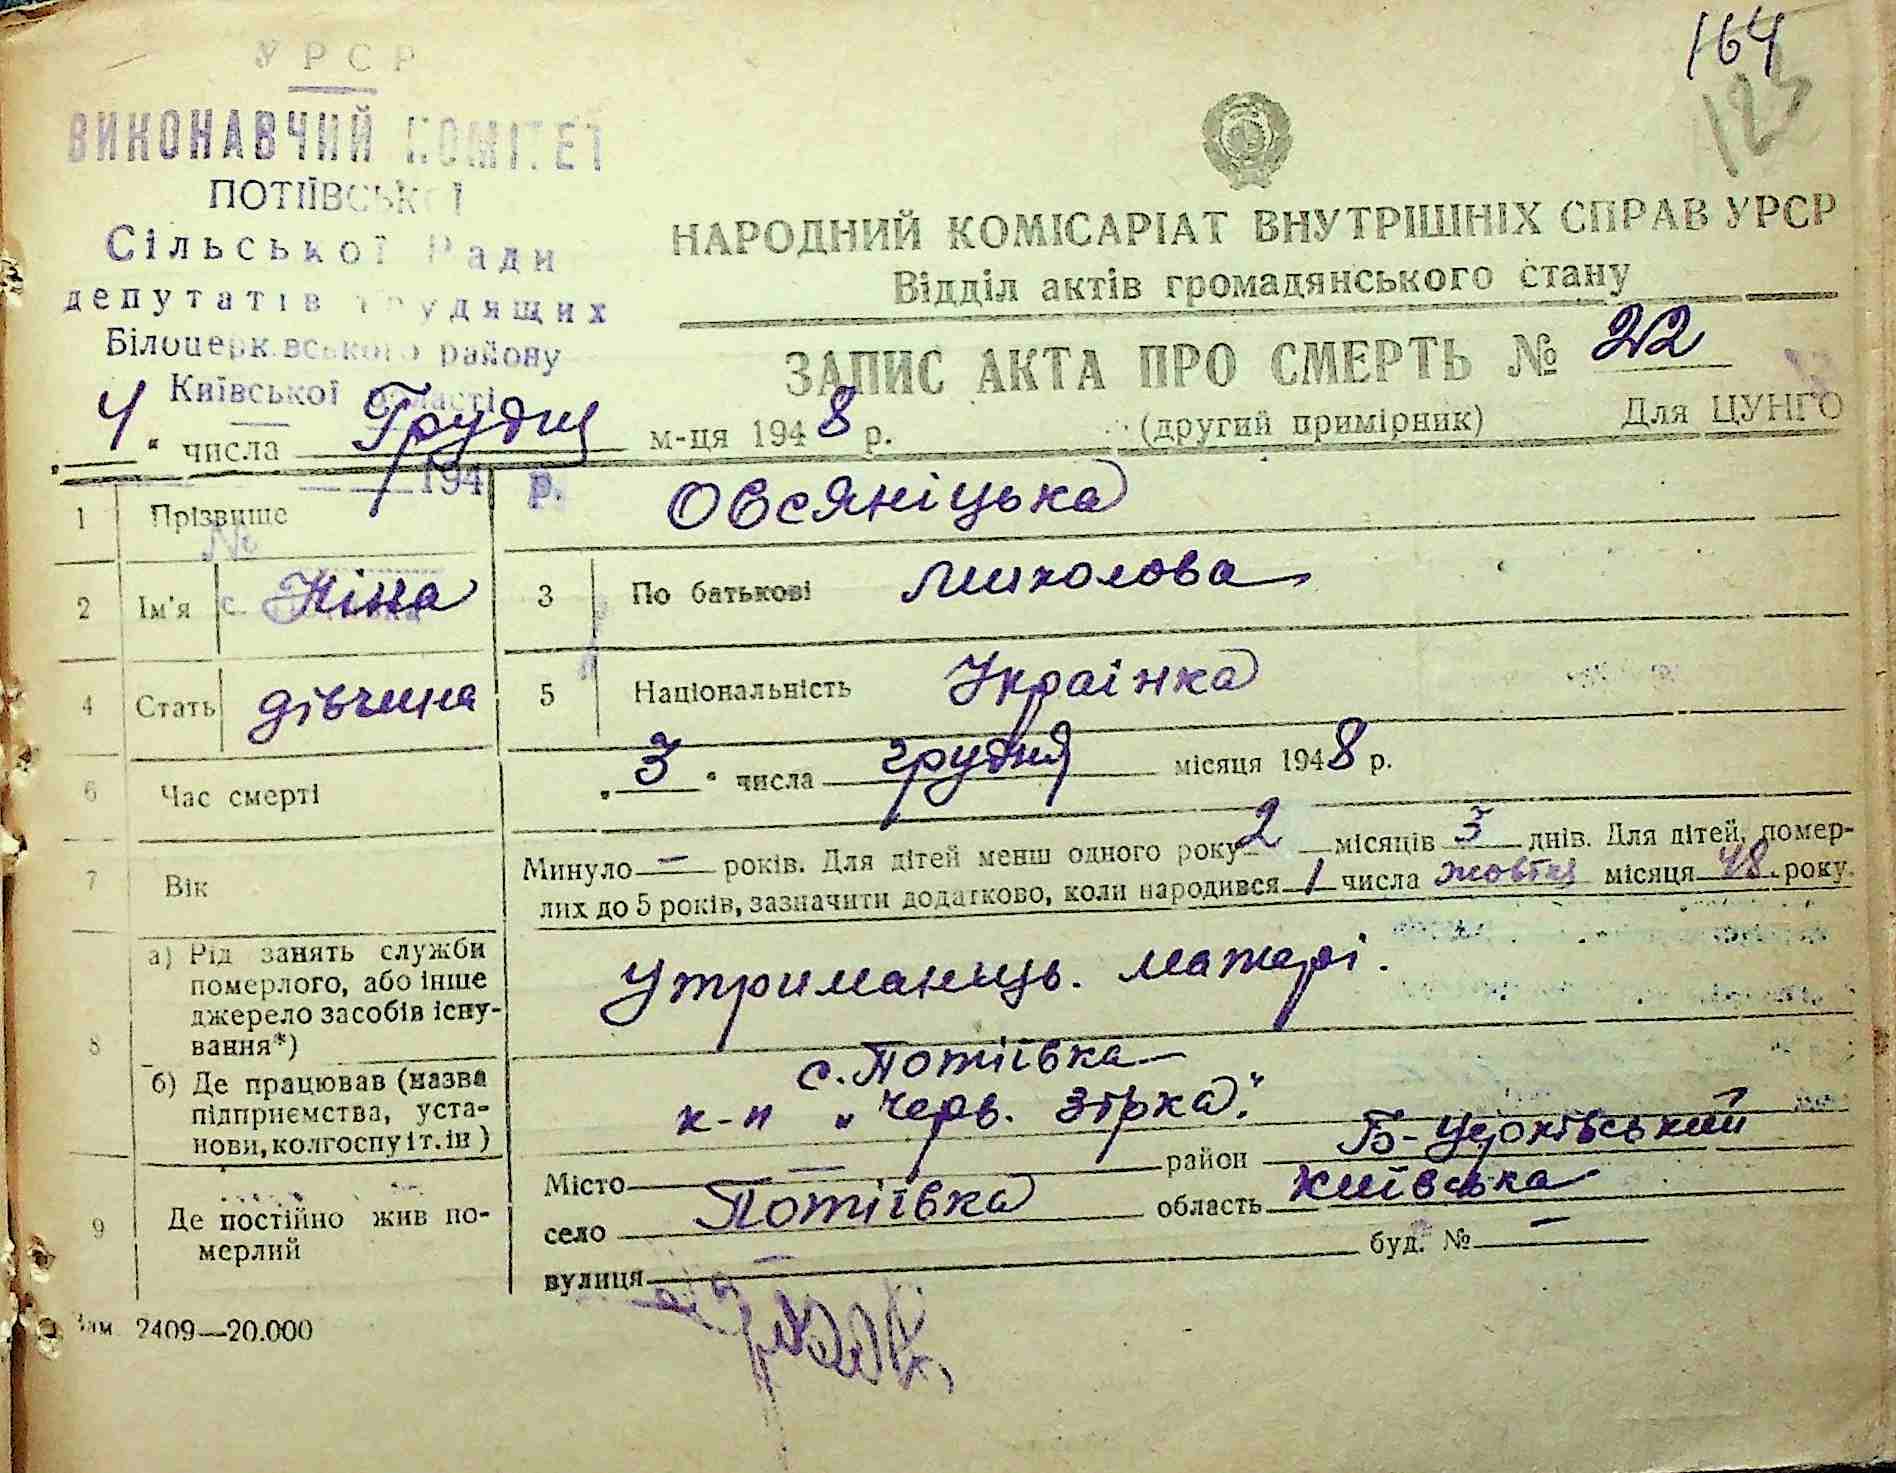 164
123
УРСР
ВИКОНАВЧИЙ КОМІТЕТ
ПОТІЇВСЬКОЇ
Сільської Ради
депутатів трудящих
Білоцерківського району
Київської області
194 р.
№
с.
НАРОДНИЙ КОМІСАРІАТ ВНУТРІШНІХ СПРАВ УРСР
Відділ актів громадянського стану
ЗАПИС АКТА ПРО СМЕРТЬ № 22
„4“ числа Грудня м-ця 1948 р. (другий примірник) Для ЦУНГО
1 Прізвище Овсяніцька
2 Ім'я Ніна 3 По батькові Миколова
4 Стать дівчина 5 Національність Українка
6 Час смерті „3“ числа грудня місяця 1948 р.
7 Вік Минуло — років. Для дітей менш одного року 2 місяців 3 днів. Для дітей, помер-
лих до 5 років, зазначити додатково, коли народився 1 числа жовтня місяця 48 року.
8 а) Рід занять служби
померлого, або інше
джерело засобів існу-
вання*)
Утриманець. матері.
б) Де працював (назва
підприємства, уста-
нови, колгоспу і т. ін)
с. Потіївка
к-п „Черв. зірка".
9 Де постійно жив по-
мерлий
Місто — район Б-Церківський
село Потіївка область Київська
вулиця — буд. № —
Зам 2409—20.000